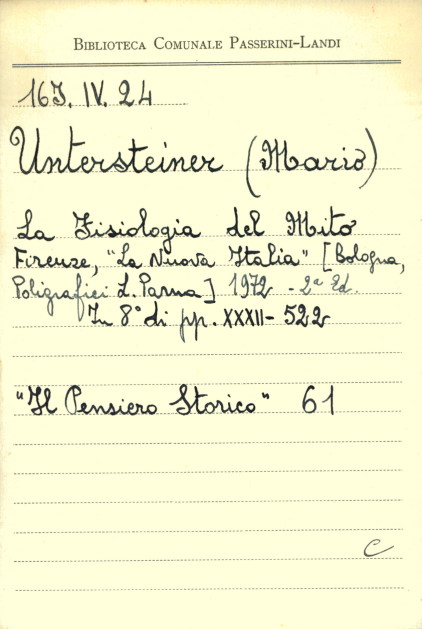 BIBLIOTECA COMUNALE PASSERINI-LANDI
16J. IV. 24
Untersteiner (Mario)
La Fisiologia del Mito
Firenze, "La Nuova Italia" [Bologna,
Poligrafici L. Parma] 1972 - 2ª Ed.
In 8° di pp. XXXII - 522
"Il Pensiero Storico" 61
C